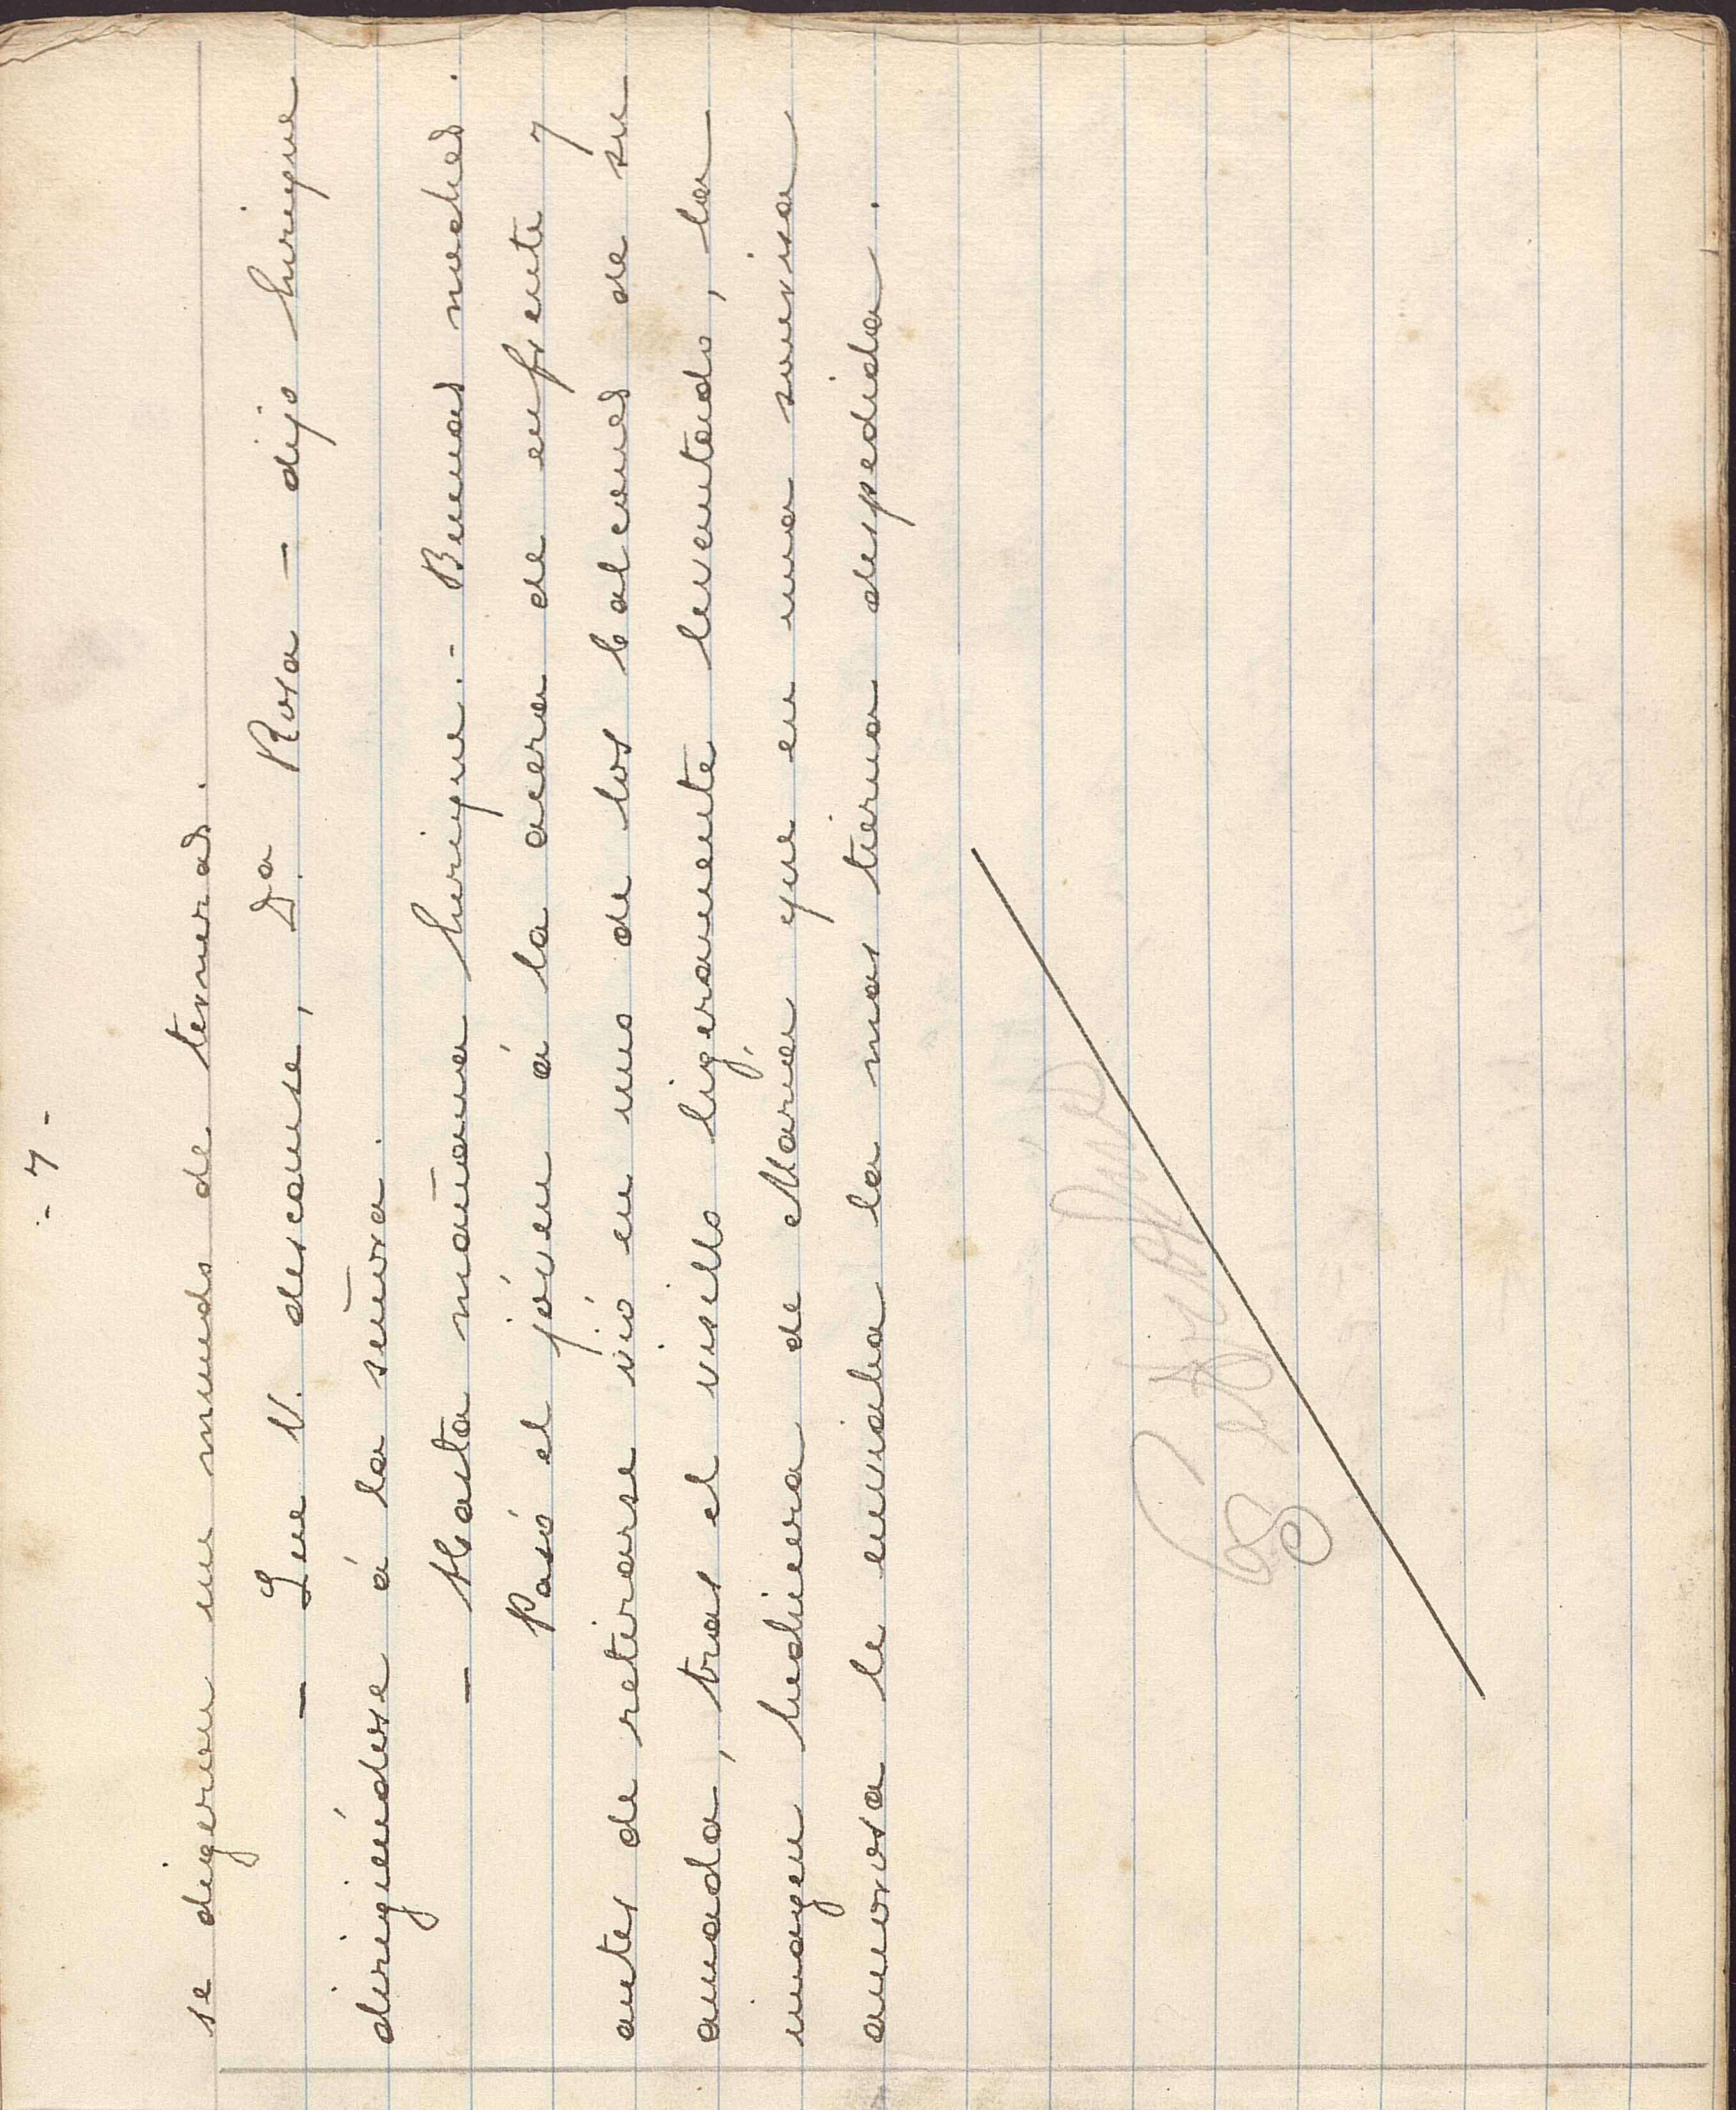 - 7 -
se digeron un mundo de ternezas.
— Que V. descanse, Dª Rosa — dijo Enrique
dirigiéndose á la señora.
— Hasta mañana Enrique.- Buenas noches.
Pasó el jóven á la acera de enfrente y
antes de retirarse vió en uno de los balcones de su
amada, tras el visillo ligeramente levantado, la
imagen hechicera de María que en una sonrisa
amorosa le enviaba la mas tierna despedida.